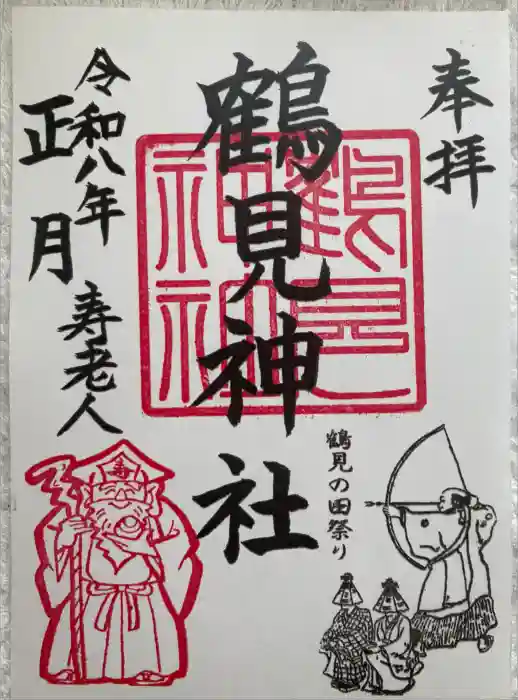 奉拝
鶴見神社
鶴見神社
令和八年
正月
寿老人
寿
鶴見の田祭り